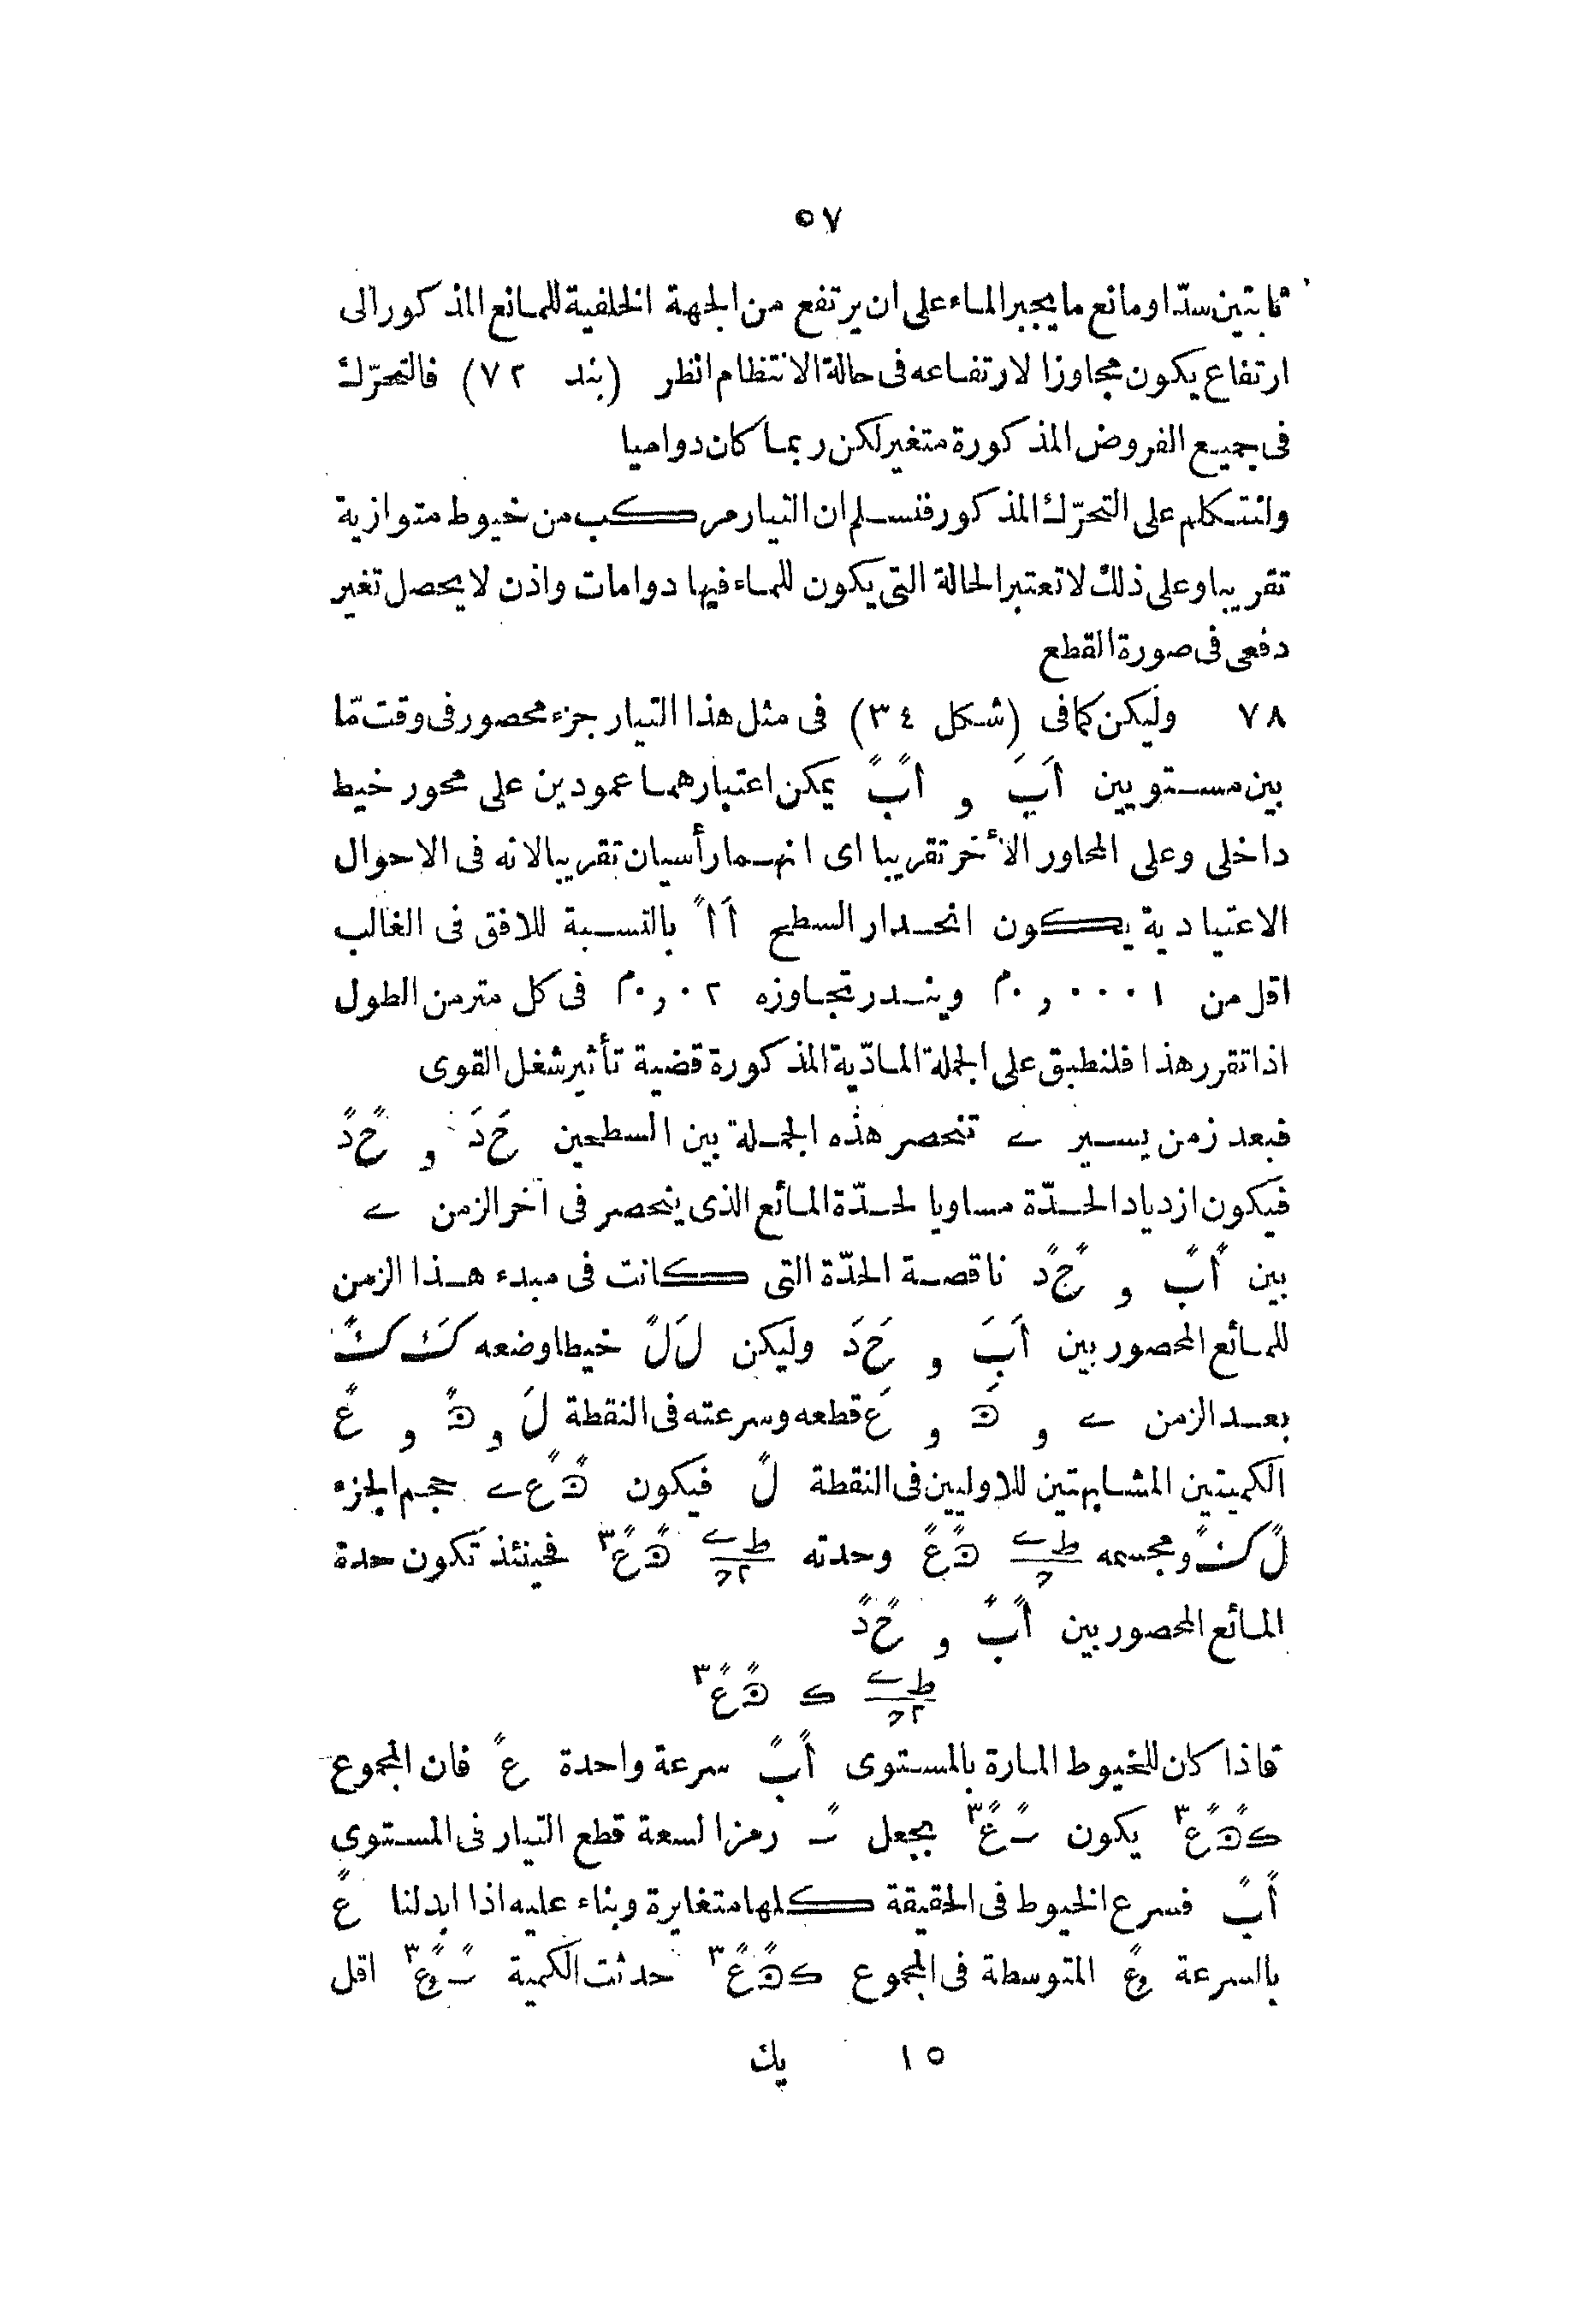 ٥٧
ثابتين سدّا او مانع ما يجبر الماء على ان يرتفع من الجهة الخلفية للمانع المذكور الى
ارتفاع يكون مجاوزا لارتفاعه فى حالة الانتظام انظر (بند ٧٢) فالتحرّك
فى جميع الفروض المذكورة متغير لكن ربما كان دواميا
ولنتكلم على التحرّك المذكور فنسلم ان التيار مركب من خيوط متوازية
تقريبا وعلى ذلك لا تعتبر الحالة التى يكون للماء فيها دوامات واذن لا يحصل تغير
دفعى فى صورة القطع
٧٨ وليكن كما فى (شكل ٣٤) فى مثل هذا التيار جزء محصور فى وقت مّا
بين مستويين اَبَ و اًبً يمكن اعتبارهما عمودين على محور خيط
داخلى وعلى المحاور الأخر تقريبا اى انهما رأسيان تقريبا لانه فى الاحوال
الاعتيادية يكون انحدار السطح اَاً بالنسبة للافق فى الغالب
اقل من ٠,٠٠٠١م ويندر تجاوزه ٠,٠٢م فى كل متر من الطول
اذا تقرر هذا فلنطبق على الجملة المادّية المذكورة قضية تأثير شغل القوى
فبعد زمن يسير ے تنحصر هذه الجملة بين السطحين حَ دَ و حً دً
فيكون ازدياد الحدّة مساويا لحدّة المائع الذى ينحصر فى آخر الزمن ے
بين اًبً و حً دً ناقصة الحدّة التى كانت فى مبدء هذا الزمن
للمائع المحصور بين اَبَ و حَ دَ وليكن لَ لً خيطا وضعه كَ كً
بعد الزمن ے و ہَ و عَ قطعه وسرعته فى النقطة لَ و ہً و عً
الكميتين المشابهتين للاوليين فى النقطة لً فيكون ہً عً ے حجم الجزء
لً كً ومجسمه ط ے / ج ہً عً وحدته ط ے / ٢ج ہً عً٣ فحينئذ تكون حدة
المائع المحصور بين اًبً و حً دً
ط ے / ٢ج ک ہً عً٣
فاذا كان للخيوط المارة بالمستوى اًبً سرعة واحدة عً فان المجموع
ک ہً عً٣ يكون سً عً٣ بجعل سً رمزا لسعة قطع التيار فى المستوى
اًبً فسرع الخيوط فى الحقيقة كلها متغايرة وبناء عليه اذا ابدلنا عً
بالسرعة وعً المتوسطة فى المجموع ک ہً عً٣ حدثت الكمية سً وعً٣ اقل
١٥ يك